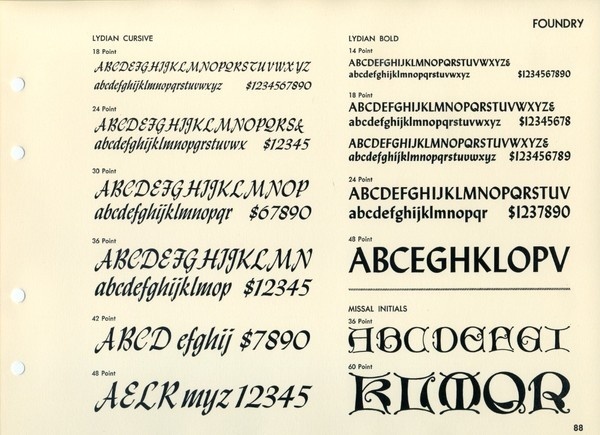 FOUNDRY
LYDIAN CURSIVE
18 Point
ABCDEFGHIJKLMNOPQRSTUVWXYZ
abcdefghijklmnopqrstuvwxyz $1234567890
24 Point
ABCDEFGHIJKLMNOPQRS&
abcdefghijklmnopqrstuvwx $12345
30 Point
ABCDEFGHIJKLMNOP
abcdefghijklmnopqr $67890
36 Point
ABCDEFGHIJKLMN
abcdefghijklmop $12345
42 Point
ABCD efghij $7890
48 Point
AELR myz 12345
LYDIAN BOLD
14 Point
ABCDEFGHIJKLMNOPQRSTUVWXYZ&
abcdefghijklmnopqrstuvwxyz $1234567890
18 Point
ABCDEFGHIJKLMNOPQRSTUVWXYZ&
abcdefghijklmnopqrstuvwxyz $12345678
ABCDEFGHIJKLMNOPQRSTUVWXYZ&
abcdefghijklmnopqrstuvwxyz $123456789
24 Point
ABCDEFGHIJKLMNOPQRSTUV
abcdefghijklmnopqr $1237890
48 Point
ABCEGHKLOPV
MISSAL INITIALS
36 Point
ABCDEFGI
60 Point
KLMOR
88